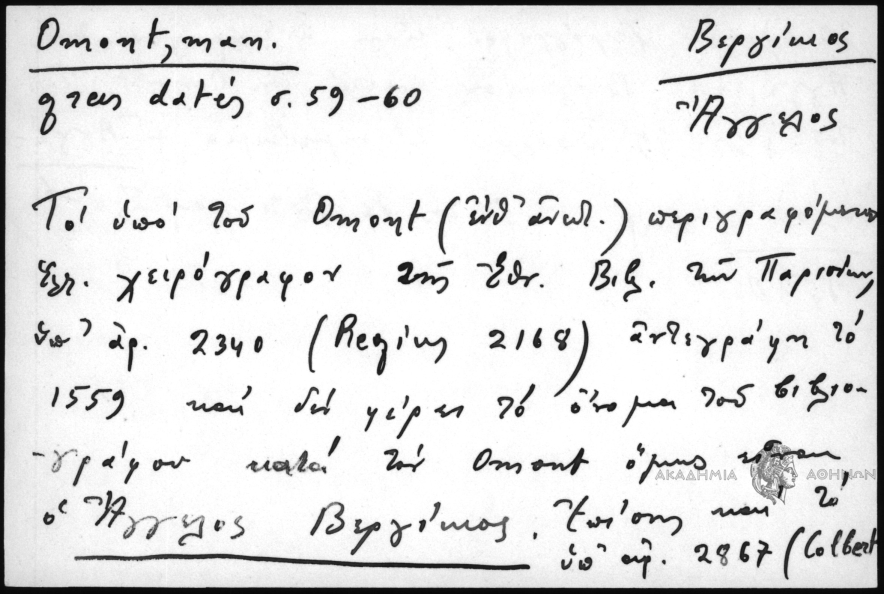 Omont, man. Βεργίκιος
grecs datés σ. 59-60 Ἄγγελος
Τό ὑπό τοῦ Omont (ἔνθ' ἀνωτ.) περιγραφόμενον
ἑλλ. χειρόγραφον τῆς Ἐθν. Βιβλ. τῶν Παρισίων,
ὑπ' ἀρ. 2340 (Regius 2168) ἀντεγράφη τό
1559 καί δέν φέρει τό ὄνομα τοῦ βιβλιο-
-γράφου κατά τόν Omont ὅμως εἶναι
ὁ Ἄγγελος Βεργίκιος. Ἐπίσης καί τό
ὑπ' ἀρ. 2867 (Colbert
ΑΚΑΔΗΜΙΑ ΑΘΗΝΩΝ